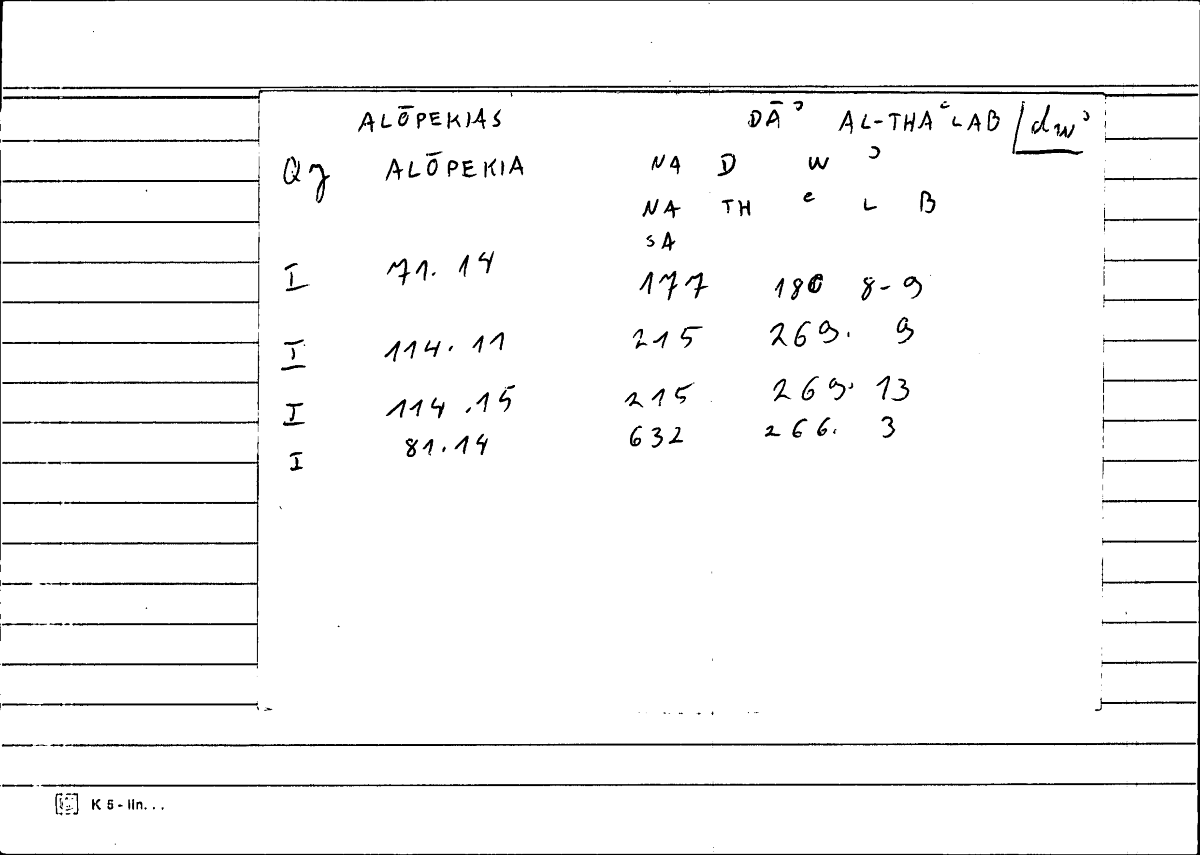 ALŌPEKIAS DĀʾ AL-THAʿLAB dwʾ
Qȷ ALŌPEKIA NA D W ʾ
NA TH ʿ L B
SA
I 71. 14 177 180 8-9
I 114. 11 215 269. 9
I 114 .15 215 269. 13
I 81.14 632 266. 3
K 5 - lin. . .